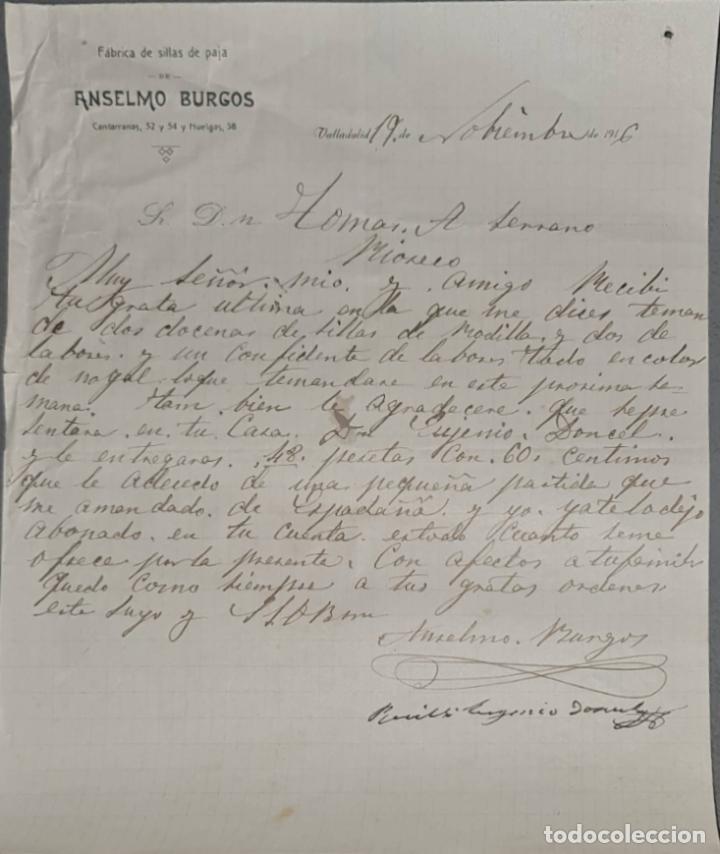 Fábrica de sillas de paja
DE
ANSELMO BURGOS
Cantarranas, 52 y 54 y Huelgas, 38
Valladolid 19 de Nobiembre de 1916
Sr. Dn Tomas. A Serrano
Rioseco
Muy Señor. mio. y amigo Recibi
tu grata ultima en la que me dices teman
de dos docenas de sillas de Rodilla. y dos de
labores. y un Confidente de labores todo en color
de nogal. loque temandare en este proxima se-
mana. tam bien te agradecere. que sepre
sentara en tu Casa. Dn Eugenio. Doncel.
y le entregaras. 48. pesetas Con. 60s centimos
que le adeudo de una pequeña partida que
me amandado. de Espadaña. y yo. yatelodejo
abonado. en tu cuenta. estodo Cuanto seme
ofrece por la presente. Con afectos a tufamilia
quedo como siempre a tus gratas ordenes
este suyo y
Anselmo. Burgos
Recibi Eugenio Doncel
todocoleccion